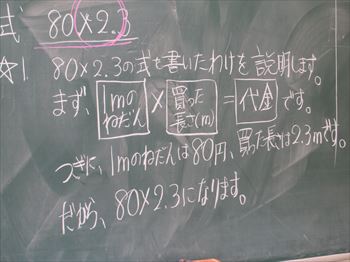 式 80×2.3
☆1 80×2.3の式を書いたわけを説明します。
まず、1mのねだん×買った長さ(m)=代金です。
つぎに、1mのねだんは80円、買った長さは2.3mです。
だから、80×2.3になります。